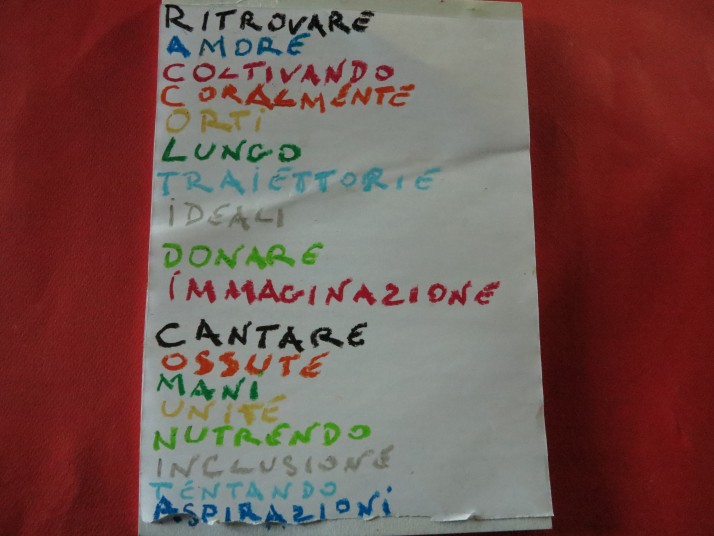 RITROVARE
AMORE
COLTIVANDO
CORALMENTE
ORTi
LUNGO
TRAIETTORIE
iDEALi
DONARE
iMMAGiNAZIONE
CANTARE
OSSUTE
MANi
UNITE
NUTRENDO
INCLUSIONE
TENTANDO
ASPIRAZIONi